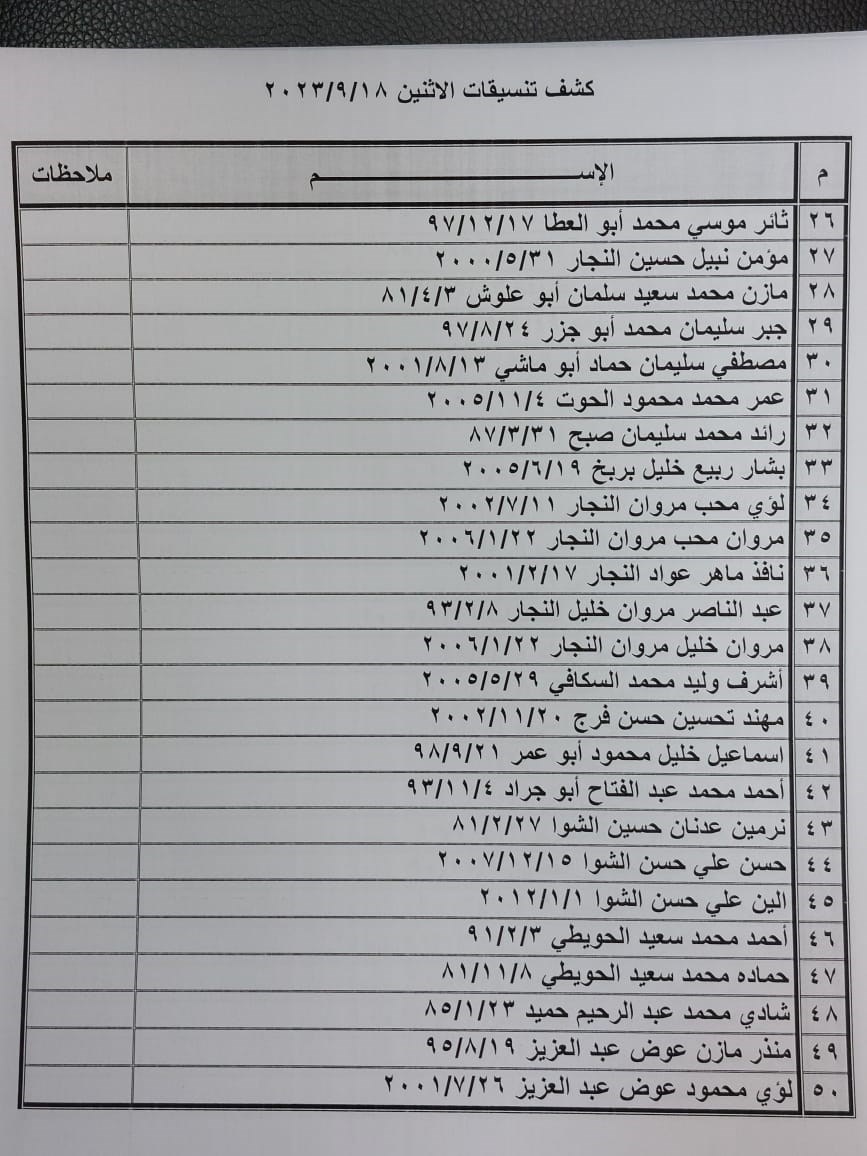 كشف تنسيقات الاثنين ٢٠٢٣/٩/١٨
م الإســـــــــــــــــــــم ملاحظات
٢٦ ثائر موسي محمد أبو العطا ٩٧/١٢/١٧
٢٧ مؤمن نبيل حسين النجار ٢٠٠٠/٥/٣١
٢٨ مازن محمد سعيد سلمان أبو علوش ٨١/٤/٣
٢٩ جبر سليمان محمد أبو جزر ٩٧/٨/٢٤
٣٠ مصطفي سليمان حماد أبو ماشي ٢٠٠١/٨/١٣
٣١ عمر محمد محمود الحوت ٢٠٠٥/١١/٤
٣٢ رائد محمد سليمان صبح ٨٧/٣/٣١
٣٣ بشار ربيع خليل بربخ ٢٠٠٥/٦/١٩
٣٤ لؤي محب مروان النجار ٢٠٠٢/٧/١١
٣٥ مروان محب مروان النجار ٢٠٠٦/١/٢٢
٣٦ نافذ ماهر عواد النجار ٢٠٠١/٢/١٧
٣٧ عبد الناصر مروان خليل النجار ٩٣/٢/٨
٣٨ مروان خليل مروان النجار ٢٠٠٦/١/٢٢
٣٩ أشرف وليد محمد السكافي ٢٠٠٥/٥/٢٩
٤٠ مهند تحسين حسن فرج ٢٠٠٢/١١/٢٠
٤١ اسماعيل خليل محمود أبو عمر ٩٨/٩/٢١
٤٢ أحمد محمد عبد الفتاح أبو جراد ٩٣/١١/٤
٤٣ نرمين عدنان حسين الشوا ٨١/٢/٢٧
٤٤ حسن علي حسن الشوا ٢٠٠٧/١٢/١٥
٤٥ الين علي حسن الشوا ٢٠١٢/١/١
٤٦ أحمد محمد سعيد الحويطي ٩١/٢/٣
٤٧ حماده محمد سعيد الحويطي ٨١/١١/٨
٤٨ شادي محمد عبد الرحيم حميد ٨٥/١/٢٣
٤٩ منذر مازن عوض عبد العزيز ٩٥/٨/١٩
٥٠ لؤي محمود عوض عبد العزيز ٢٠٠١/٧/٢٦